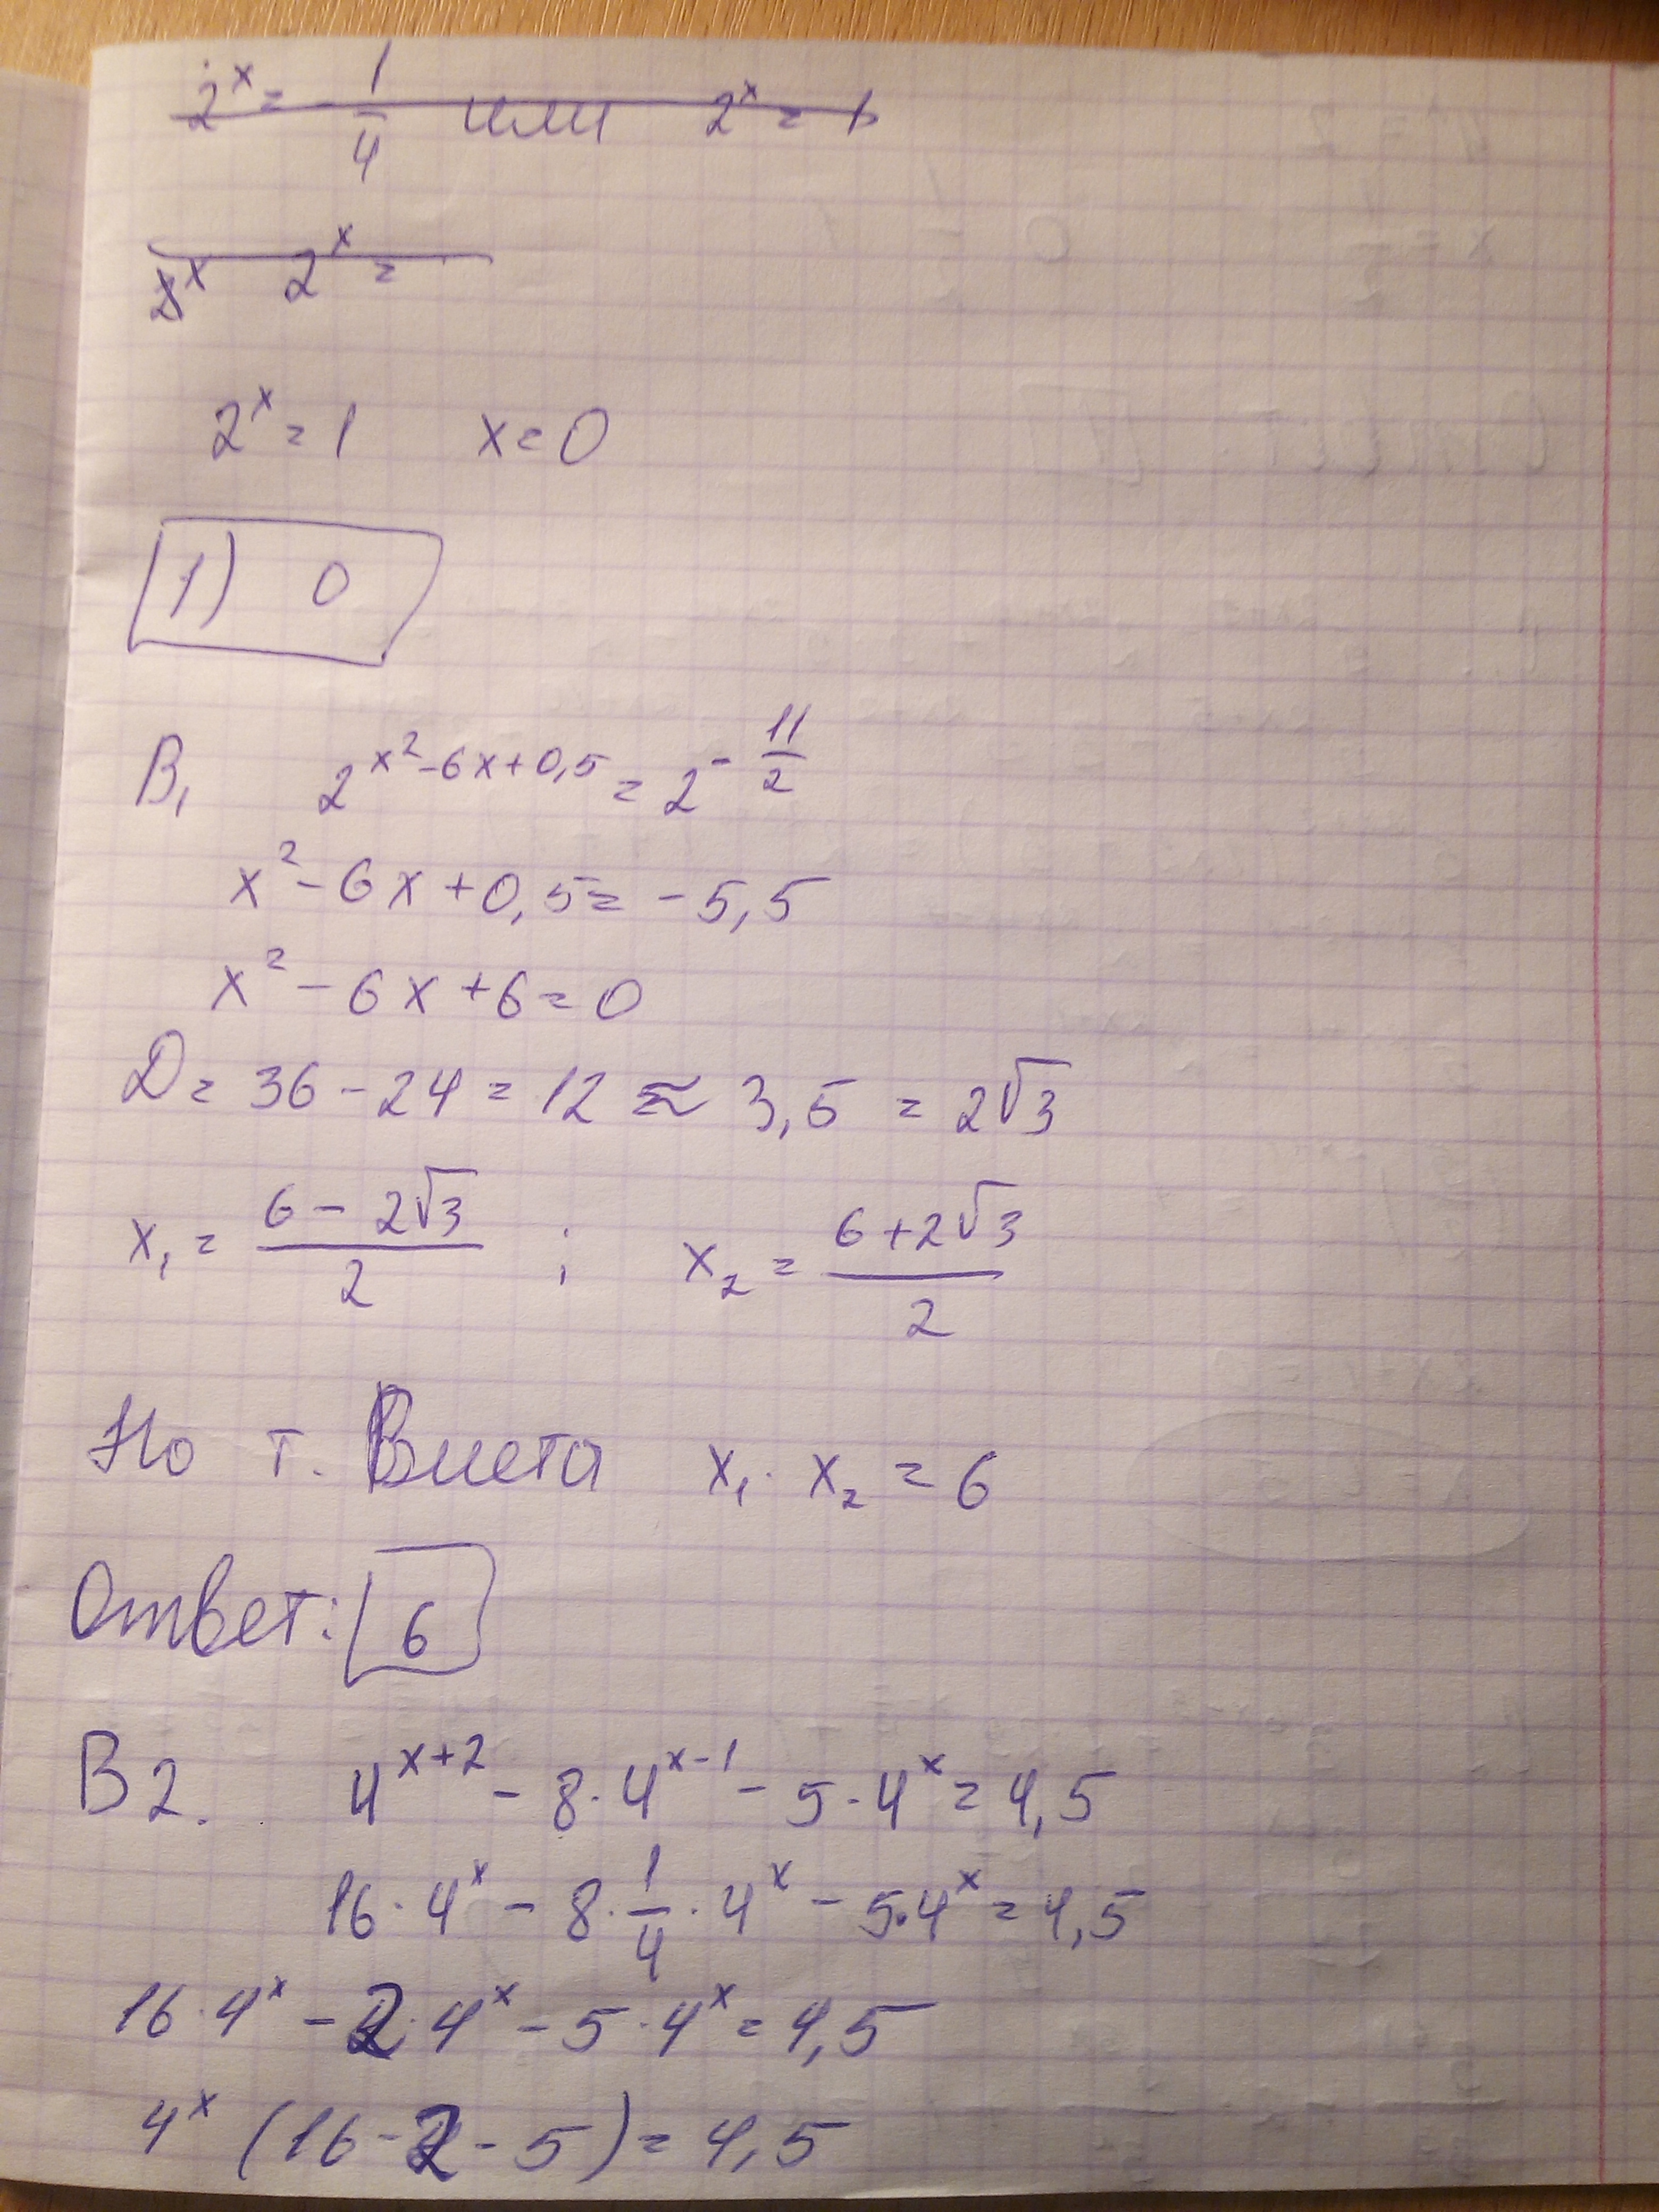 2^x = -1/4 или 2^x = 1
2^x 2^x =
2^x = 1 x = 0
1) 0
B1 2^(x^2-6x+0,5) = 2^(-11/2)
x^2 - 6x + 0,5 = -5,5
x^2 - 6x + 6 = 0
D = 36 - 24 = 12 ≈ 3,5 = 2√3
x1 = (6 - 2√3)/2 ; x2 = (6 + 2√3)/2
По т. Виета x1 · x2 = 6
Ответ: 6
B2. 4^(x+2) - 8·4^(x-1) - 5·4^x = 4,5
16·4^x - 8·1/4·4^x - 5·4^x = 4,5
16·4^x - 2·4^x - 5·4^x = 4,5
4^x (16 - 2 - 5) = 4,5